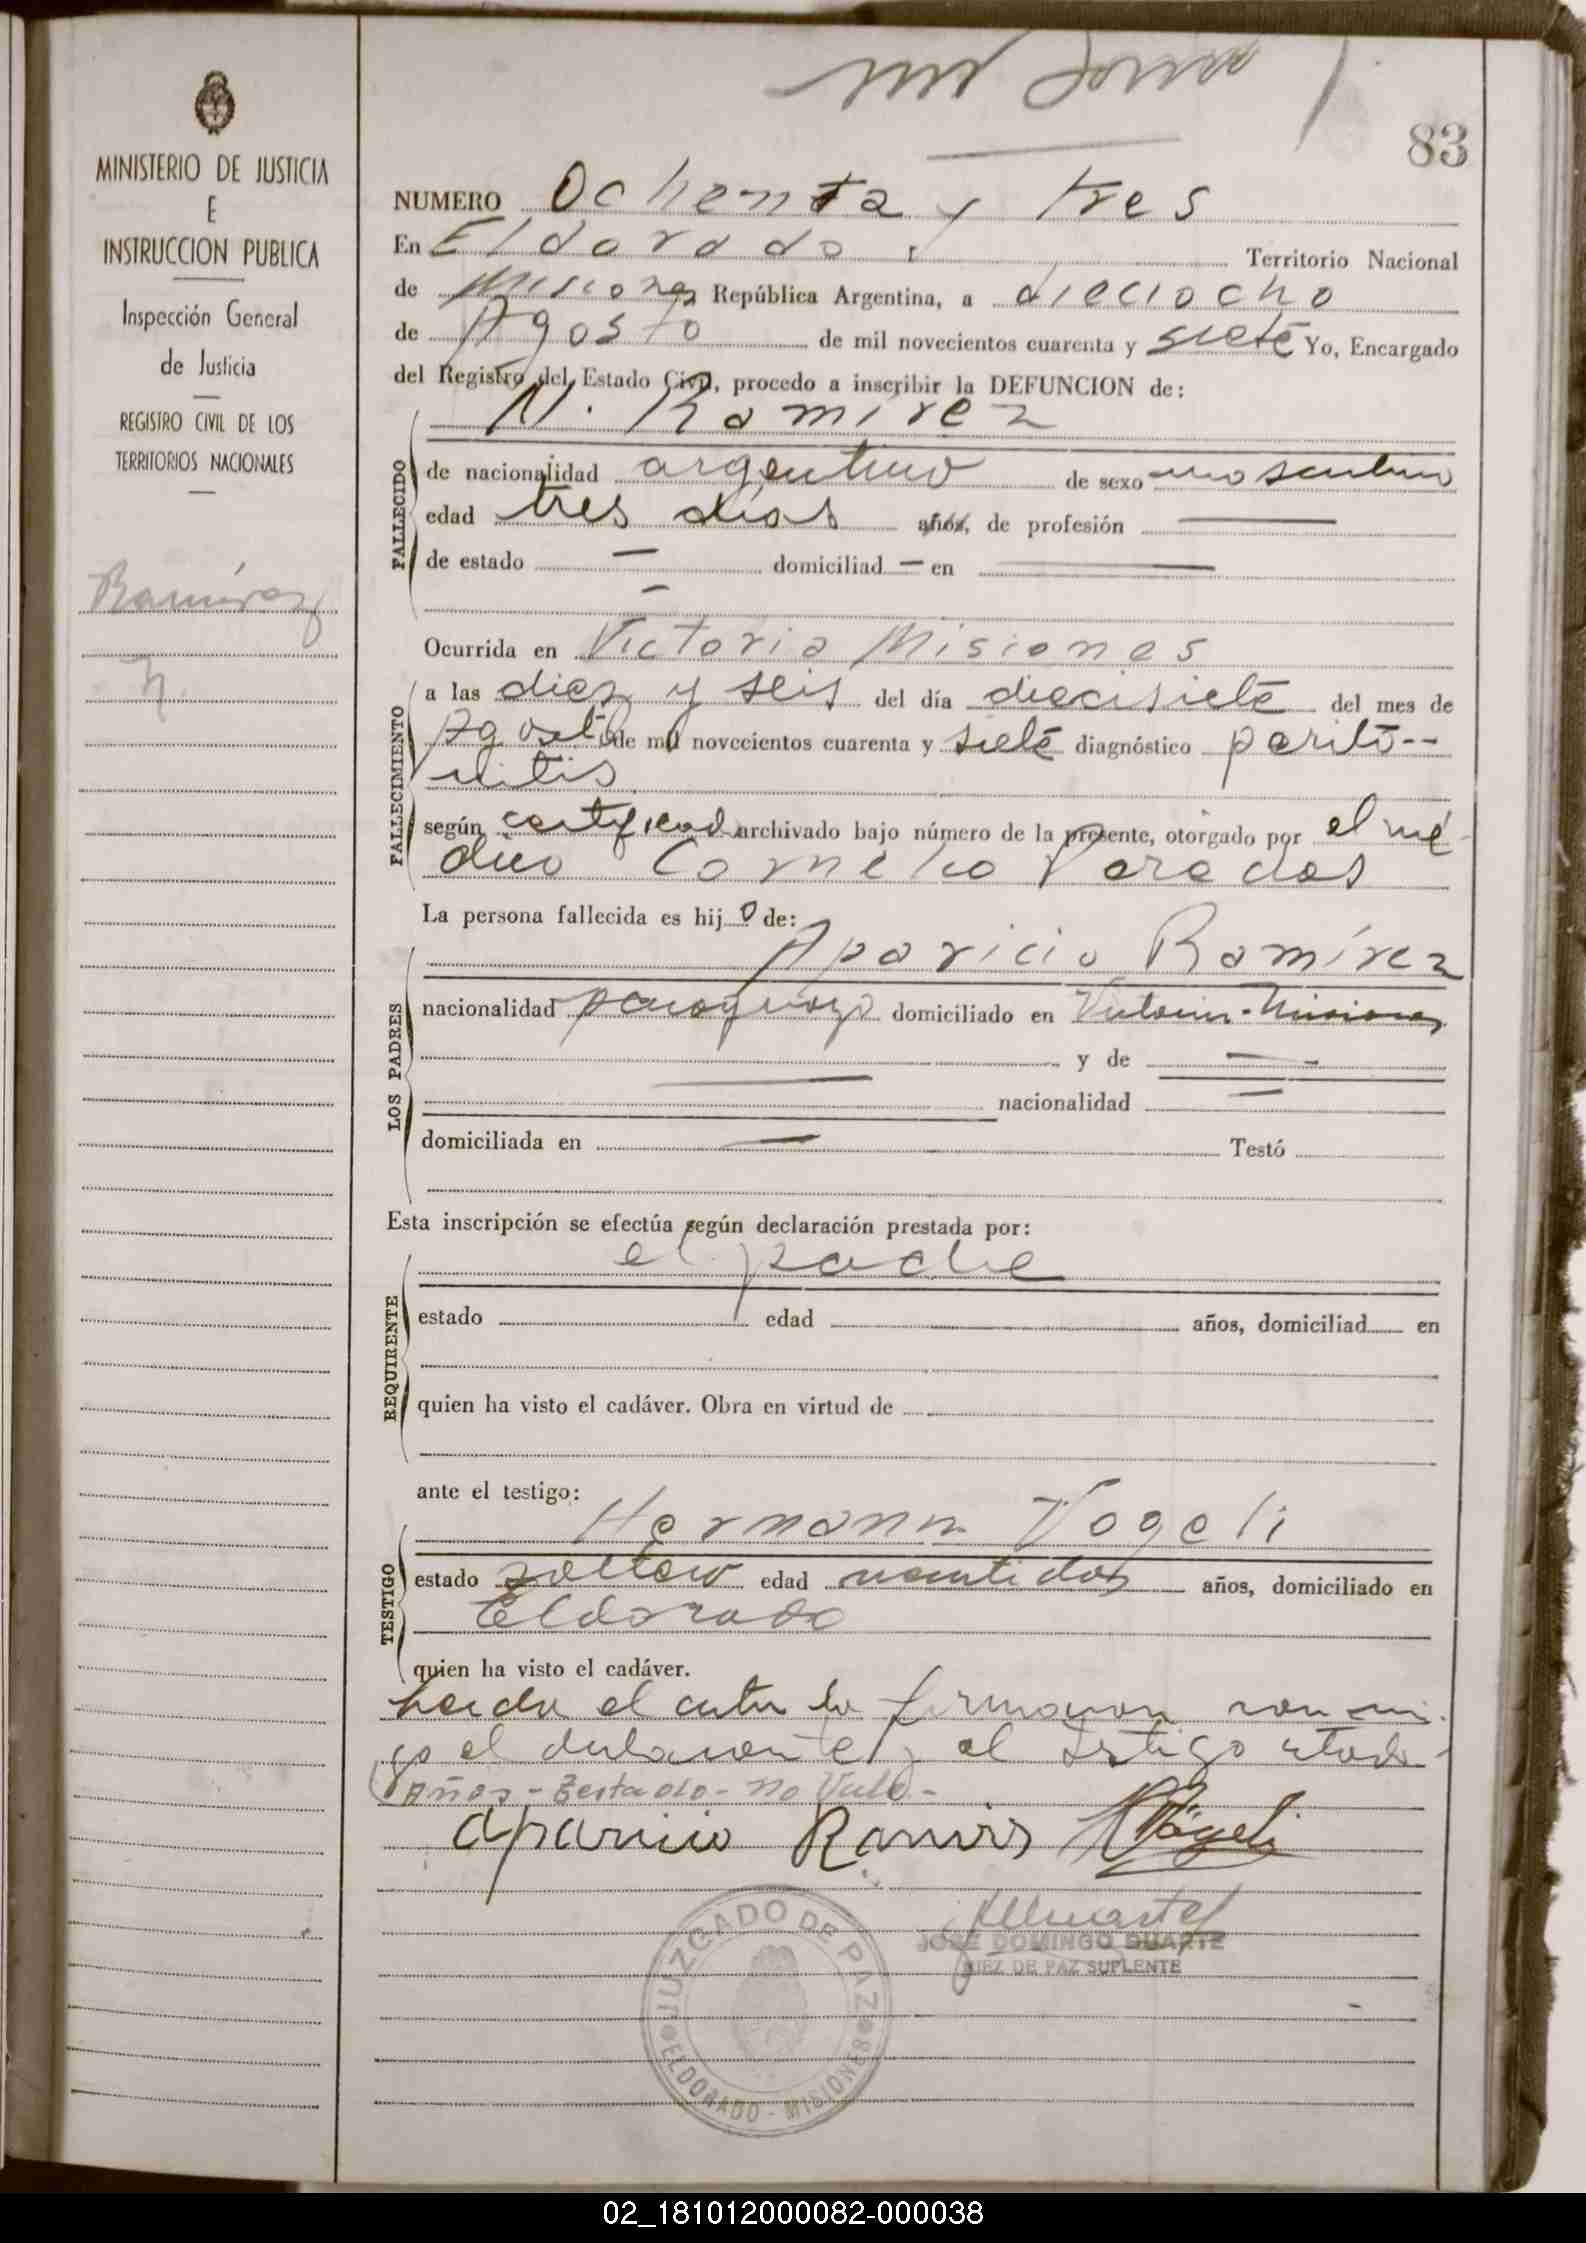 83
MINISTERIO DE JUSTICIA
E
INSTRUCCION PUBLICA
Inspección General
de Justicia
REGISTRO CIVIL DE LOS
TERRITORIOS NACIONALES
Ramírez
N.
NUMERO Ochenta y tres
En Eldorado, Territorio Nacional
de Misiones República Argentina, a dieciocho
de Agosto de mil novecientos cuarenta y siete Yo, Encargado
del Registro del Estado Civil, procedo a inscribir la DEFUNCION de:
N. Ramírez
FALLECIDO
de nacionalidad argentino de sexo masculino
edad tres días años, de profesión —
de estado — domiciliad — en —
—
Ocurrida en Victoria Misiones
FALLECIMIENTO
a las diez y seis del día diecisiete del mes de
Agosto de mil novecientos cuarenta y siete diagnóstico perito--
nitis
según certificado archivado bajo número de la presente, otorgado por el mé-
dico Cornelio Paredes
La persona fallecida es hijo de:
LOS PADRES
Aparicio Ramírez
nacionalidad paraguayo domiciliado en Victoria-Misiones
y de —
— nacionalidad —
domiciliada en — Testó
Esta inscripción se efectúa según declaración prestada por:
REQUIRENTE
el padre
estado edad años, domiciliad en
quien ha visto el cadáver. Obra en virtud de
ante el testigo:
TESTIGO
Hermann Vogeli
estado soltero edad veintidos años, domiciliado en
Eldorado
quien ha visto el cadáver.
Leida el acta la firmaron conmi-
go el declarante y el testigo citado-
Años-Testado-no Vale-
Aparicio Ramirs Vögeli
JOSE DOMINGO DUARTE
JUEZ DE PAZ SUPLENTE
JUZGADO DE PAZ
ELDORADO - MISIONES
02_181012000082-000038